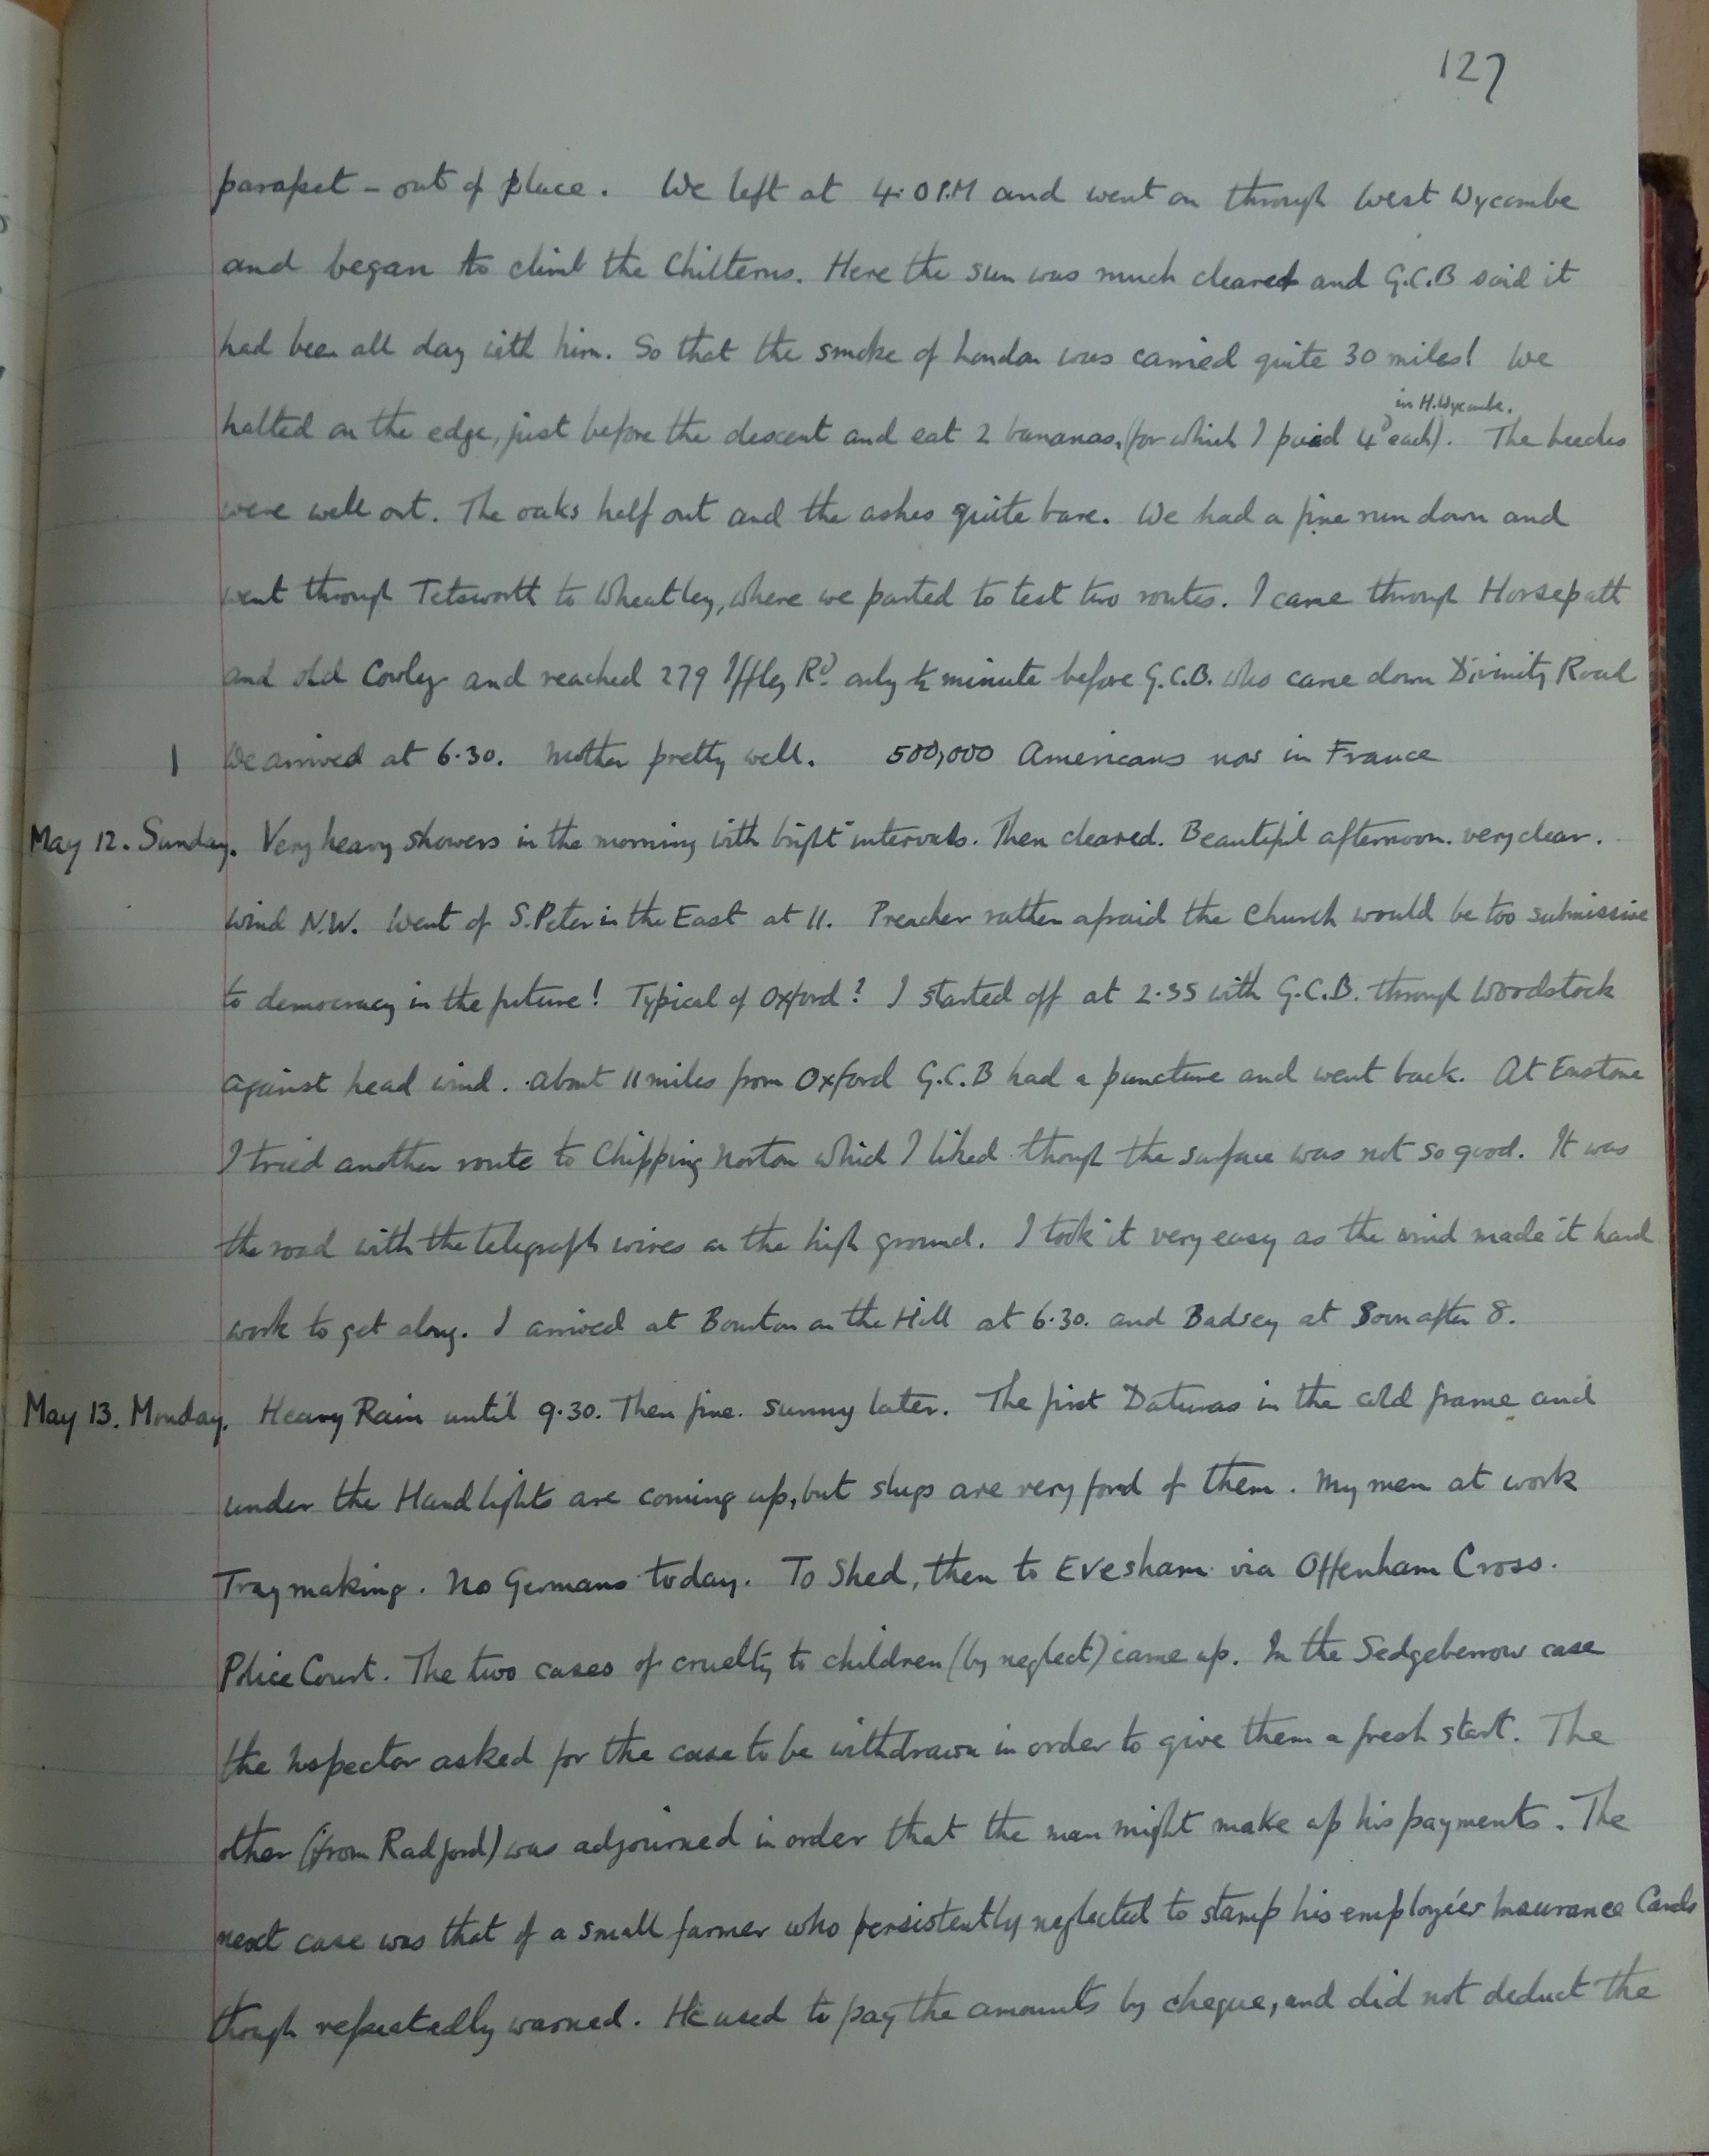 127
parapet – out of place. We left at 4.0 P.M and went on through West Wycombe
and began to climb the Chilterns. Here the sun was much cleared and G.C.B said it
had been all day with him. So that the smoke of London was carried quite 30 miles! We
in H. Wycombe.
halted on the edge, just before the descent and eat 2 bananas, (for which I paid 4D each). The beeches
were well out. The oaks half out and the ashes quite bare. We had a fine run down and
went through Tetsworth to Wheatley, where we parted to test two routes. I came through Horsepath
and old Cowley and reached 279 Iffley Rd. only ½ minute before G.C.B. who came down Divinity Road
| We arrived at 6.30. Mother pretty well. 500,000 Americans now in France
May 12. Sunday. Very heavy showers in the morning with bright intervals. Then cleared. Beautiful afternoon. very clear.
Wind N.W. Went of S. Peter in the East at 11. Preacher rather afraid the Church would be too submissive
to democracy in the future! Typical of Oxford? I started off at 2.35 with G.C.B. through Woodstock
against head wind. About 11 miles from Oxford G.C.B had a puncture and went back. At Enstone
I tried another route to Chipping Norton which I liked though the surface was not so good. It was
the road with the telegraph wires on the high ground. I took it very easy as the wind made it hard
work to get along. I arrived at Bourton on the Hill at 6.30. and Badsey at Soon after 8.
May 13. Monday. Heavy Rain until 9.30. Then fine. Sunny later. The first Daturas in the cold frame and
under the Hand lights are coming up, but slugs are very fond of them. My men at work
Tray making. No Germans today. To Shed, then to Evesham via Offenham Cross.
Police Court. The two cases of cruelty to children (by neglect) came up. In the Sedgeberrow case
the Inspector asked for the case to be withdrawn in order to give them a fresh start. The
other (from Radford) was adjourned in order that the man might make up his payments. The
next case was that of a small farmer who persistently neglected to stamp his employées Insurance Cards
though repeatedly warned. He used to pay the amounts by cheque, and did not deduct the